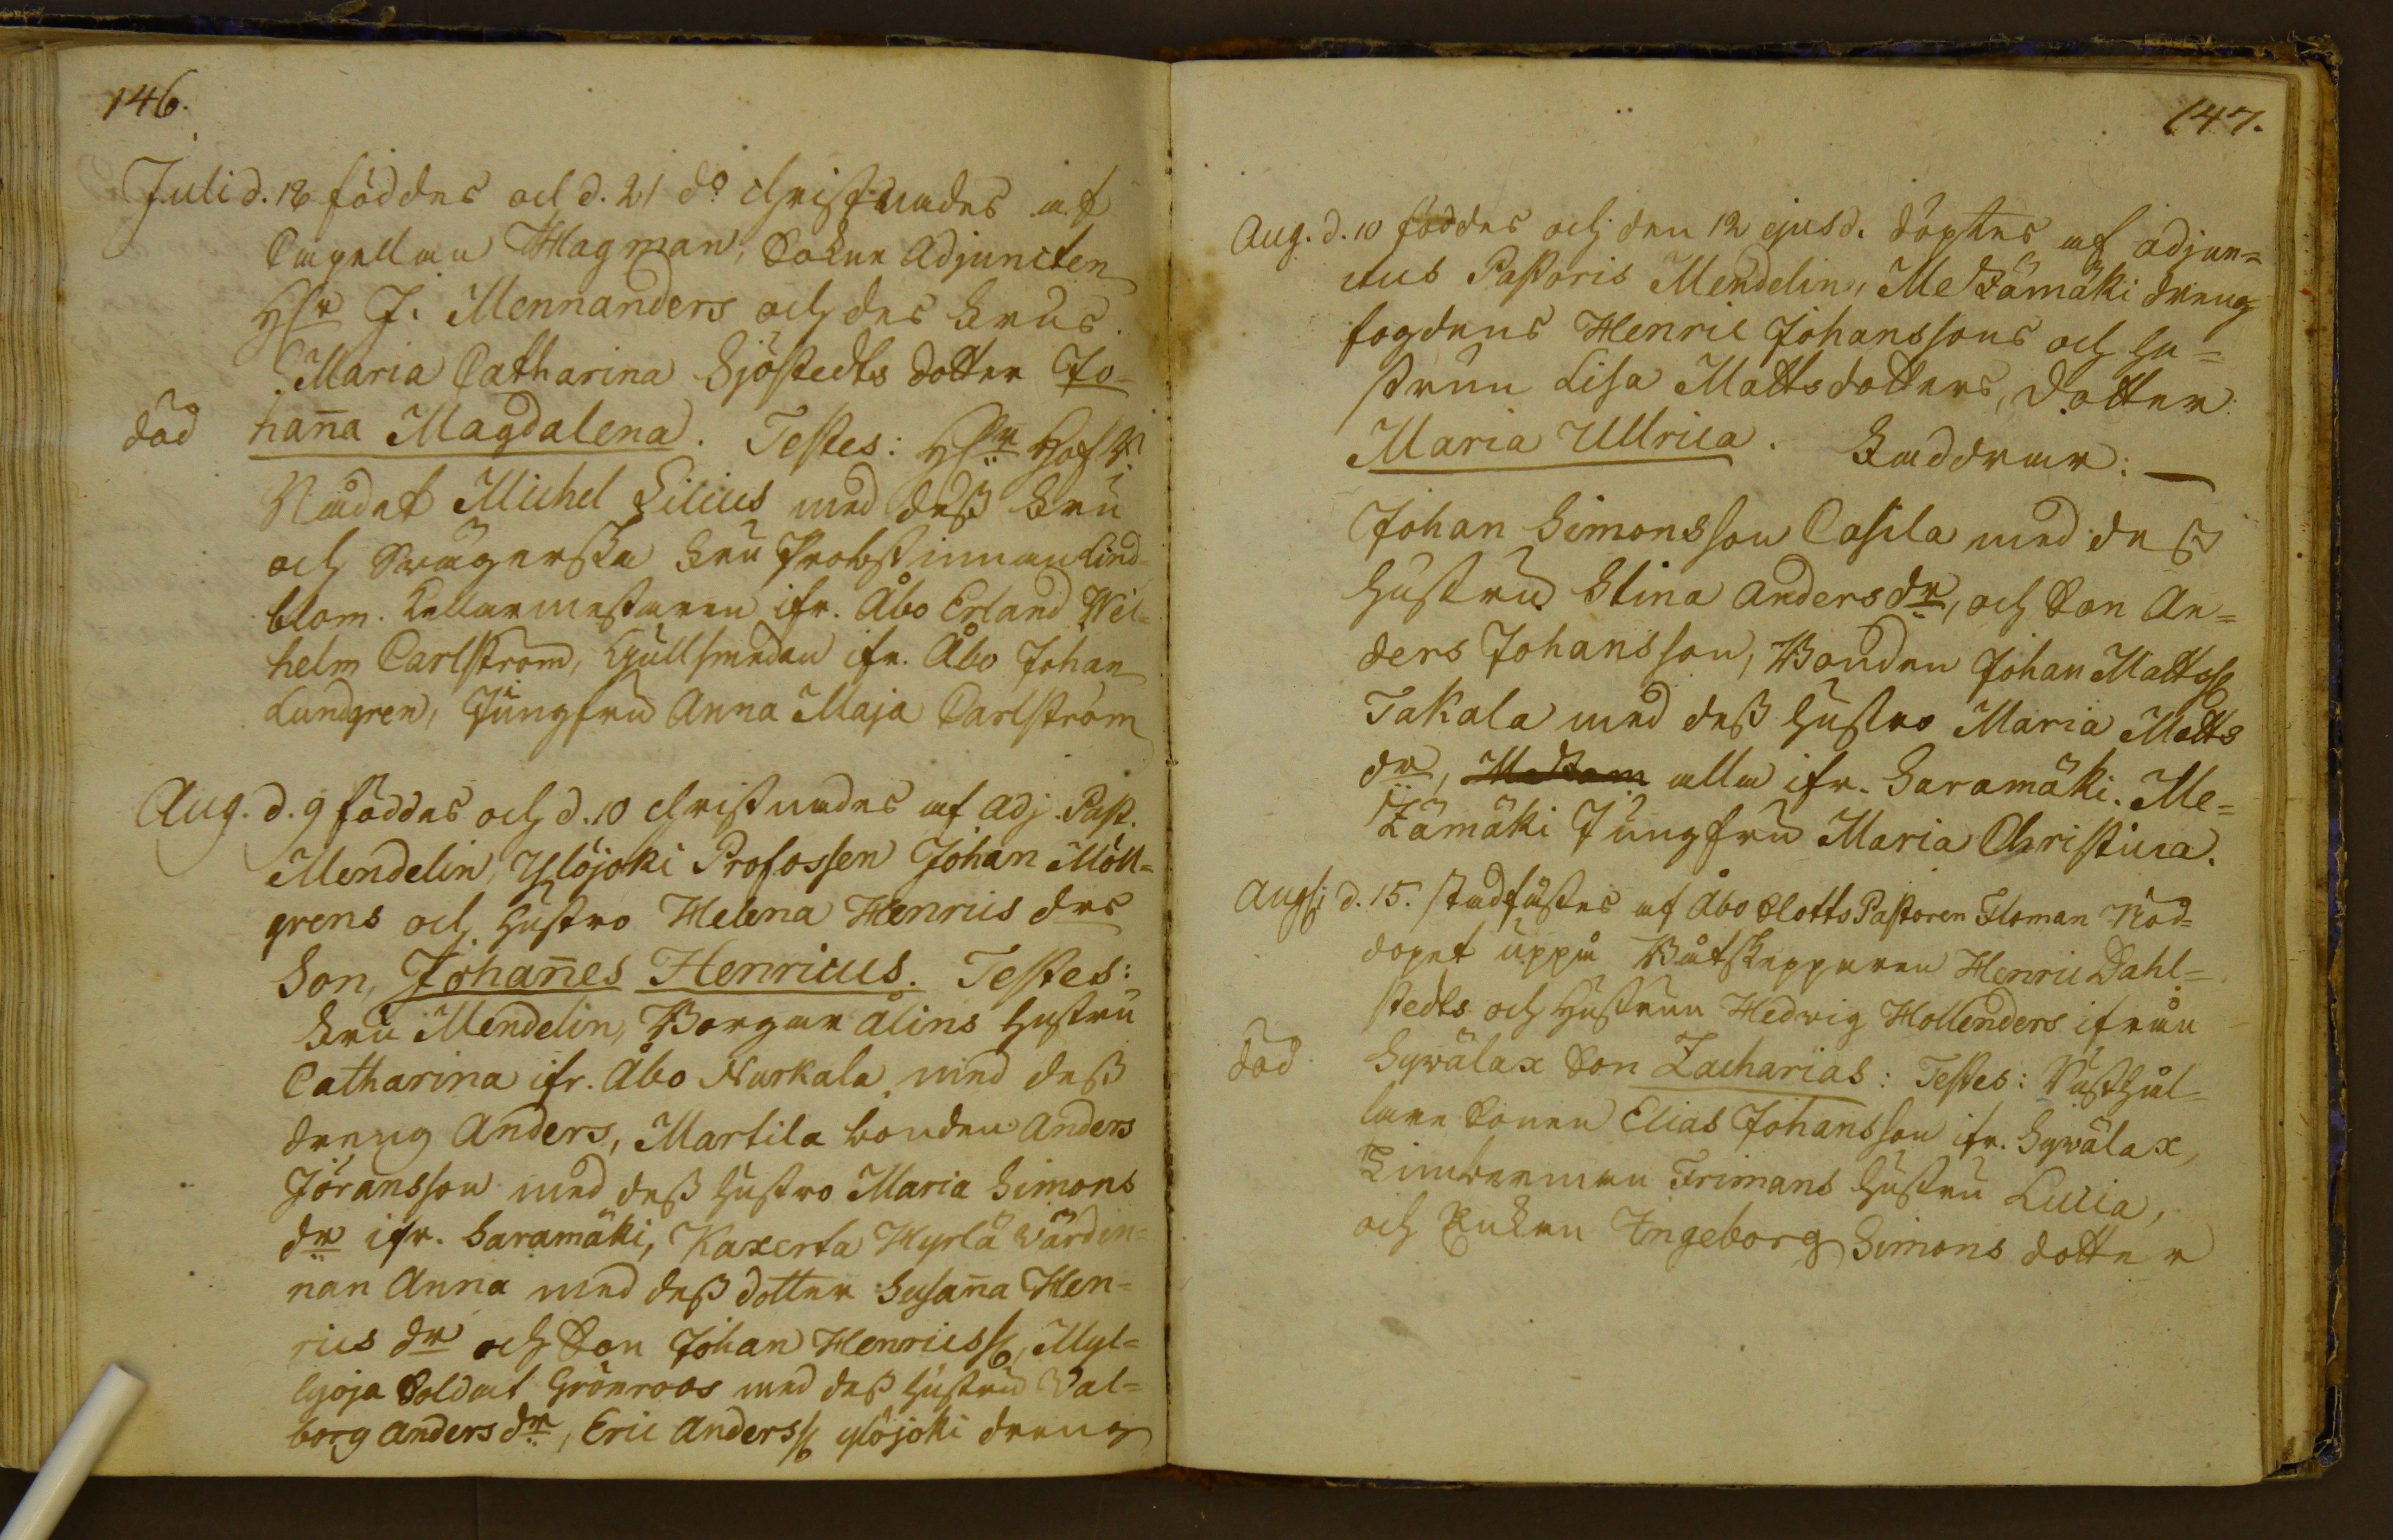 146.
Juli d. 18 föddes och d. 21 d:o christnades af
Capellan Hagman, Sokne Adjuncten
H:r J. Mennanders och des Frus
Maria Catharina Sjöstedts dotter Jo-
död hanna Magdalena. Testes: H:r Hof R.
Rådet Michel Lilius med dess Fru
och Swägerska Fru Probstinnan Lind-
blom. Källarmestaren ifr. Åbo Erland Wil=
helm Carlström, Gullsmeden ifr. Åbo Johan
Lundgren, Jungfru Anna Maja Carlström
Aug. d. 9 föddes och d. 10 christnades af adj. Past.
Mendelin, Ylöjoki Profossen Johan Möll=
grens och Hustro Helena Henrics drs
Son, Johannes Henricus. Testes:
Fru Mendelin, Borgar Ålins Hustru
Catharina ifr. Åbo Nurkala med dess
dreng Anders, Martila bonden Anders
Jöransson med dess Hustro Maria Simons
dr ifr. Saramäki, Kaxerta Hyrlä Wärdin=
nan Anna med dess dotter Susanna Hen=
rics dr och Son Johan Henricss., Myl=
lyoja Soldat Grönroos med dess Hustru Wal=
borg Anders dr, Eric Anderss. ylöjoki dreng
147.
Aug. d. 10 föddes och den 12 ejusd. döptes af adjun=
ctus Pastoris Mendelin, Metzämäki dreng
fogdens Henric Johanssons och Hu=
strun Lisa Mattsdotters, Dotter
Maria Ullrica. Faddrar: —
Johan Simonsson Casila med dess
Hustru Stina Anders dr, och Son An=
ders Johansson, Bonden Johan Mattss.
Takala med dess Hustro Maria Matts
dr, alla ifr. Saramäki. Me=
tzämäki Jungfru Maria Christina.
Augsi d. 15. stadfästes af Åbo Slotts Pastoren Floman Nöd=
dopet uppå Båtskepparen Henric Dahl=
stedts och Hustrun Hedvig Hollenders ifrån
död. Sywälax Son Zacharias: Testes: Rusthål=
lare Sonen Elias Johansson ifr. Sywälax,
Timberman Frimans Hustru Lucia,
och Enkan Ingeborg Simons dotter